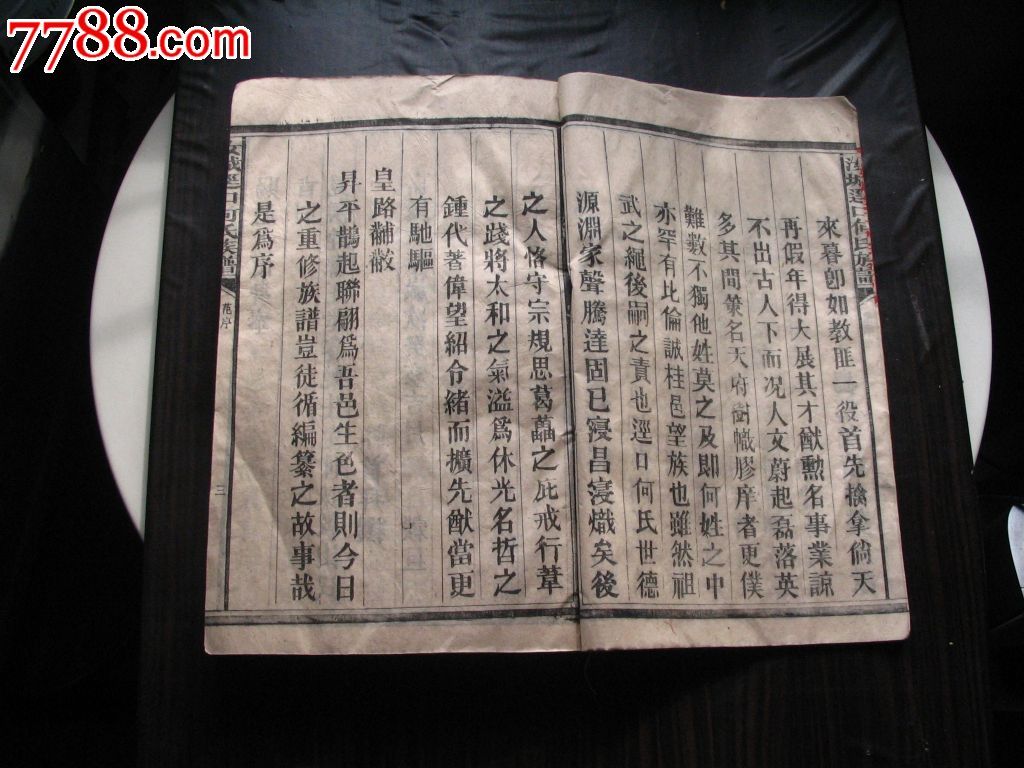 7788.com
來暮卽如教匪一役首先擒拿倘天
再假年得大展其才猷勲名事業諒
不出古人下而况人文蔚起磊落英
多其間策名天府樹幟膠庠者更僕
難數不獨他姓莫之及即何姓之中
亦罕有比倫誠桂邑望族也雖然祖
武之繩後嗣之責也逕口何氏世德
源淵家聲騰達固已寖昌寖熾矣後
之人恪守宗規思葛藟之庇戒行葦
之踐將太和之氣溢爲休光名哲之
鍾代著偉望紹令緒而擴先猷當更
有馳驅
皇路黼黻
昇平鵲起聯翩爲吾邑生色者則今日
之重修族譜豈徒循編纂之故事哉
是爲序
逕口何氏族譜
范序
三